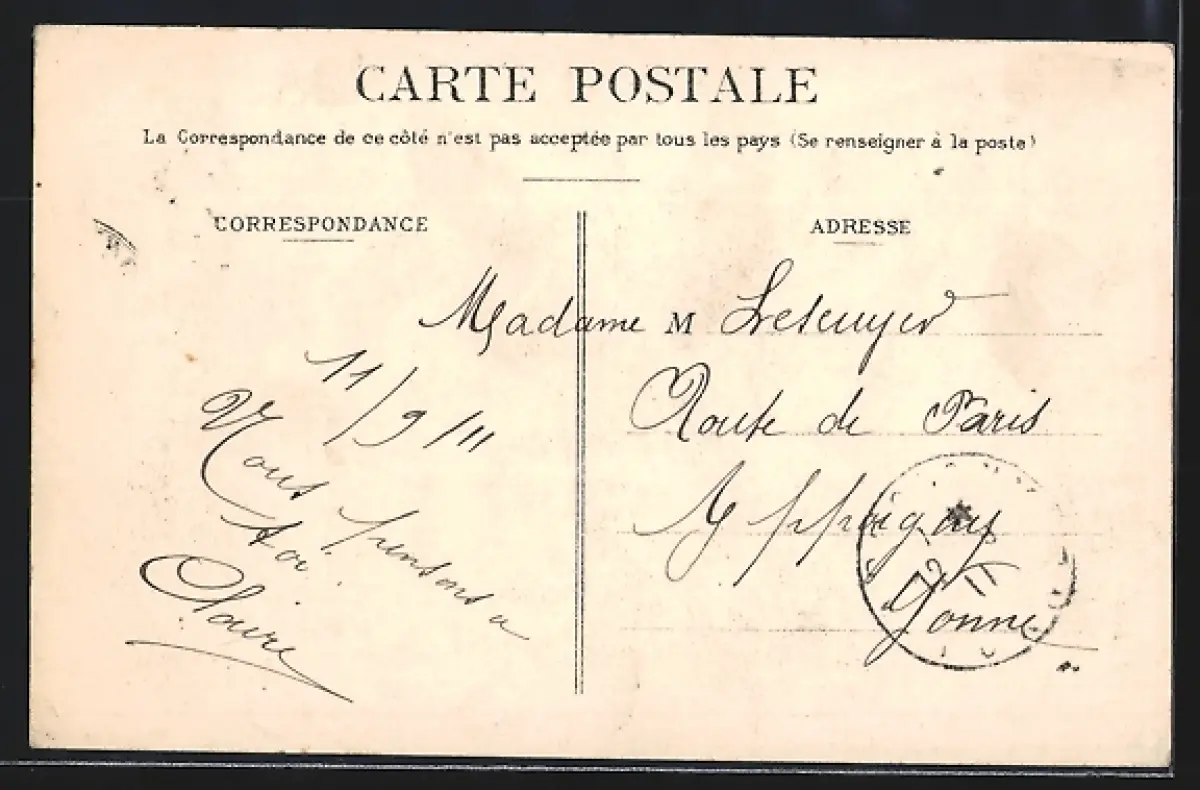 CARTE POSTALE
La Correspondance de ce côté n'est pas acceptée par tous les pays (Se renseigner à la poste)
CORRESPONDANCE
11/9/11
Nous pensons a
toi.
Claire
ADRESSE
Madame M Lescuyer
Route de Paris
Appoigny
Yonne